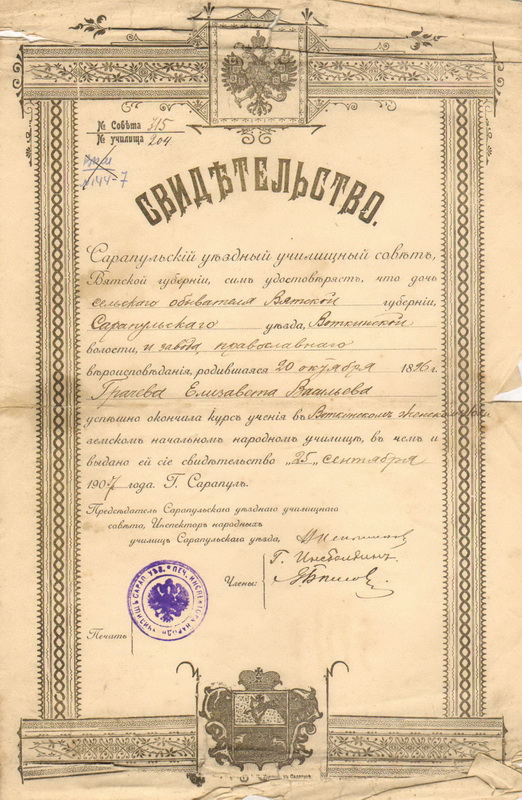 № Совѣта 315
№ училища 204
144-7
СВИДѢТЕЛЬСТВО.
Сарапульскій уѣздный училищный совѣтъ,
Вятской губерніи, симъ удостовѣряетъ, что дочь
сельскаго обывателя Вятской губерніи,
Сарапульскаго уѣзда, Воткинской
волости, и завода, православнаго
вѣроисповѣданія, родившаяся 20 октября 1896 г.
Грачева Елизавета Васильева
успѣшно окончила курсъ ученія въ Воткинскомъ женскомъ
земскомъ начальномъ народномъ училищѣ, въ чемъ и
выдано ей сіе свидѣтельство „25„ сентября
1907 года. Г. Сарапулъ.
Предсѣдатель Сарапульскаго уѣзднаго училищнаго
совѣта, Инспекторъ народныхъ
училищъ Сарапульскаго уѣзда,
Члены:
Печать
ПЕЧ. ИНСПЕКТОРА НАРОДН. УЧИЛИЩЪ САРАП. УѢЗ.